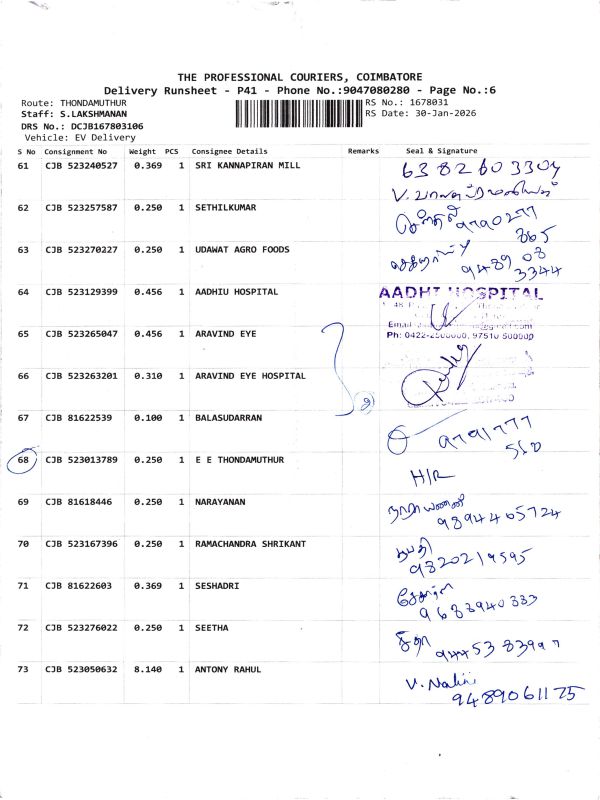 THE PROFESSIONAL COURIERS, COIMBATORE
Delivery Runsheet - P41 - Phone No.:9047080280 - Page No.:6
Route: THONDAMUTHUR RS No.: 1678031
Staff: S.LAKSHMANAN RS Date: 30-Jan-2026
DRS No.: DCJB167803106
Vehicle: EV Delivery
S No Consignment No Weight PCS Consignee Details Remarks Seal & Signature
61 CJB 523240527 0.369 1 SRI KANNAPIRAN MILL 6382603304
V.
62 CJB 523257587 0.250 1 SETHILKUMAR 9790277
865
63 CJB 523270227 0.250 1 UDAWAT AGRO FOODS 9489 08
3344
64 CJB 523129399 0.456 1 AADHIU HOSPITAL AADHI HOSPITAL
65 CJB 523265047 0.456 1 ARAVIND EYE
Ph: 0422-2500000, 97510 50000
66 CJB 523263201 0.310 1 ARAVIND EYE HOSPITAL
2
67 CJB 81622539 0.100 1 BALASUDARRAN 9791777
510
68 CJB 523013789 0.250 1 E E THONDAMUTHUR H/R
69 CJB 81618446 0.250 1 NARAYANAN நாராயணன்
9894465724
70 CJB 523167396 0.250 1 RAMACHANDRA SHRIKANT
9820219595
71 CJB 81622603 0.369 1 SESHADRI
9683940333
72 CJB 523276022 0.250 1 SEETHA சீதா
9445383997
73 CJB 523050632 8.140 1 ANTONY RAHUL V. Nalini
9489061175